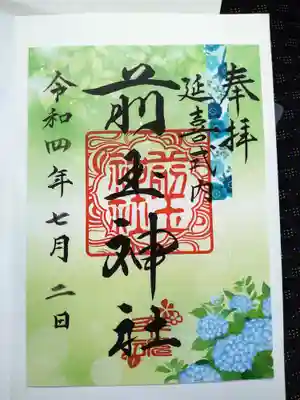 奉拝
延喜式内
前玉神社
令和四年七月二日
前玉神社